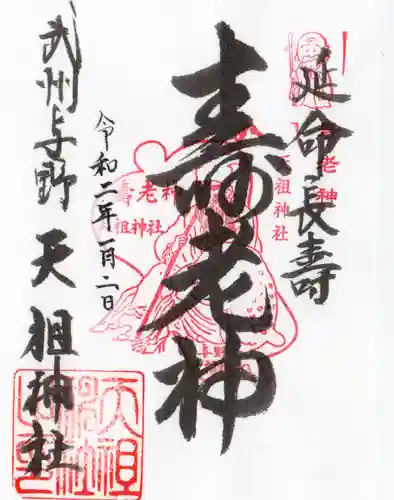 延命長壽
壽老神
令和二年一月二日
武州与野 天祖神社
壽老神
天祖神社
老神
天祖神社